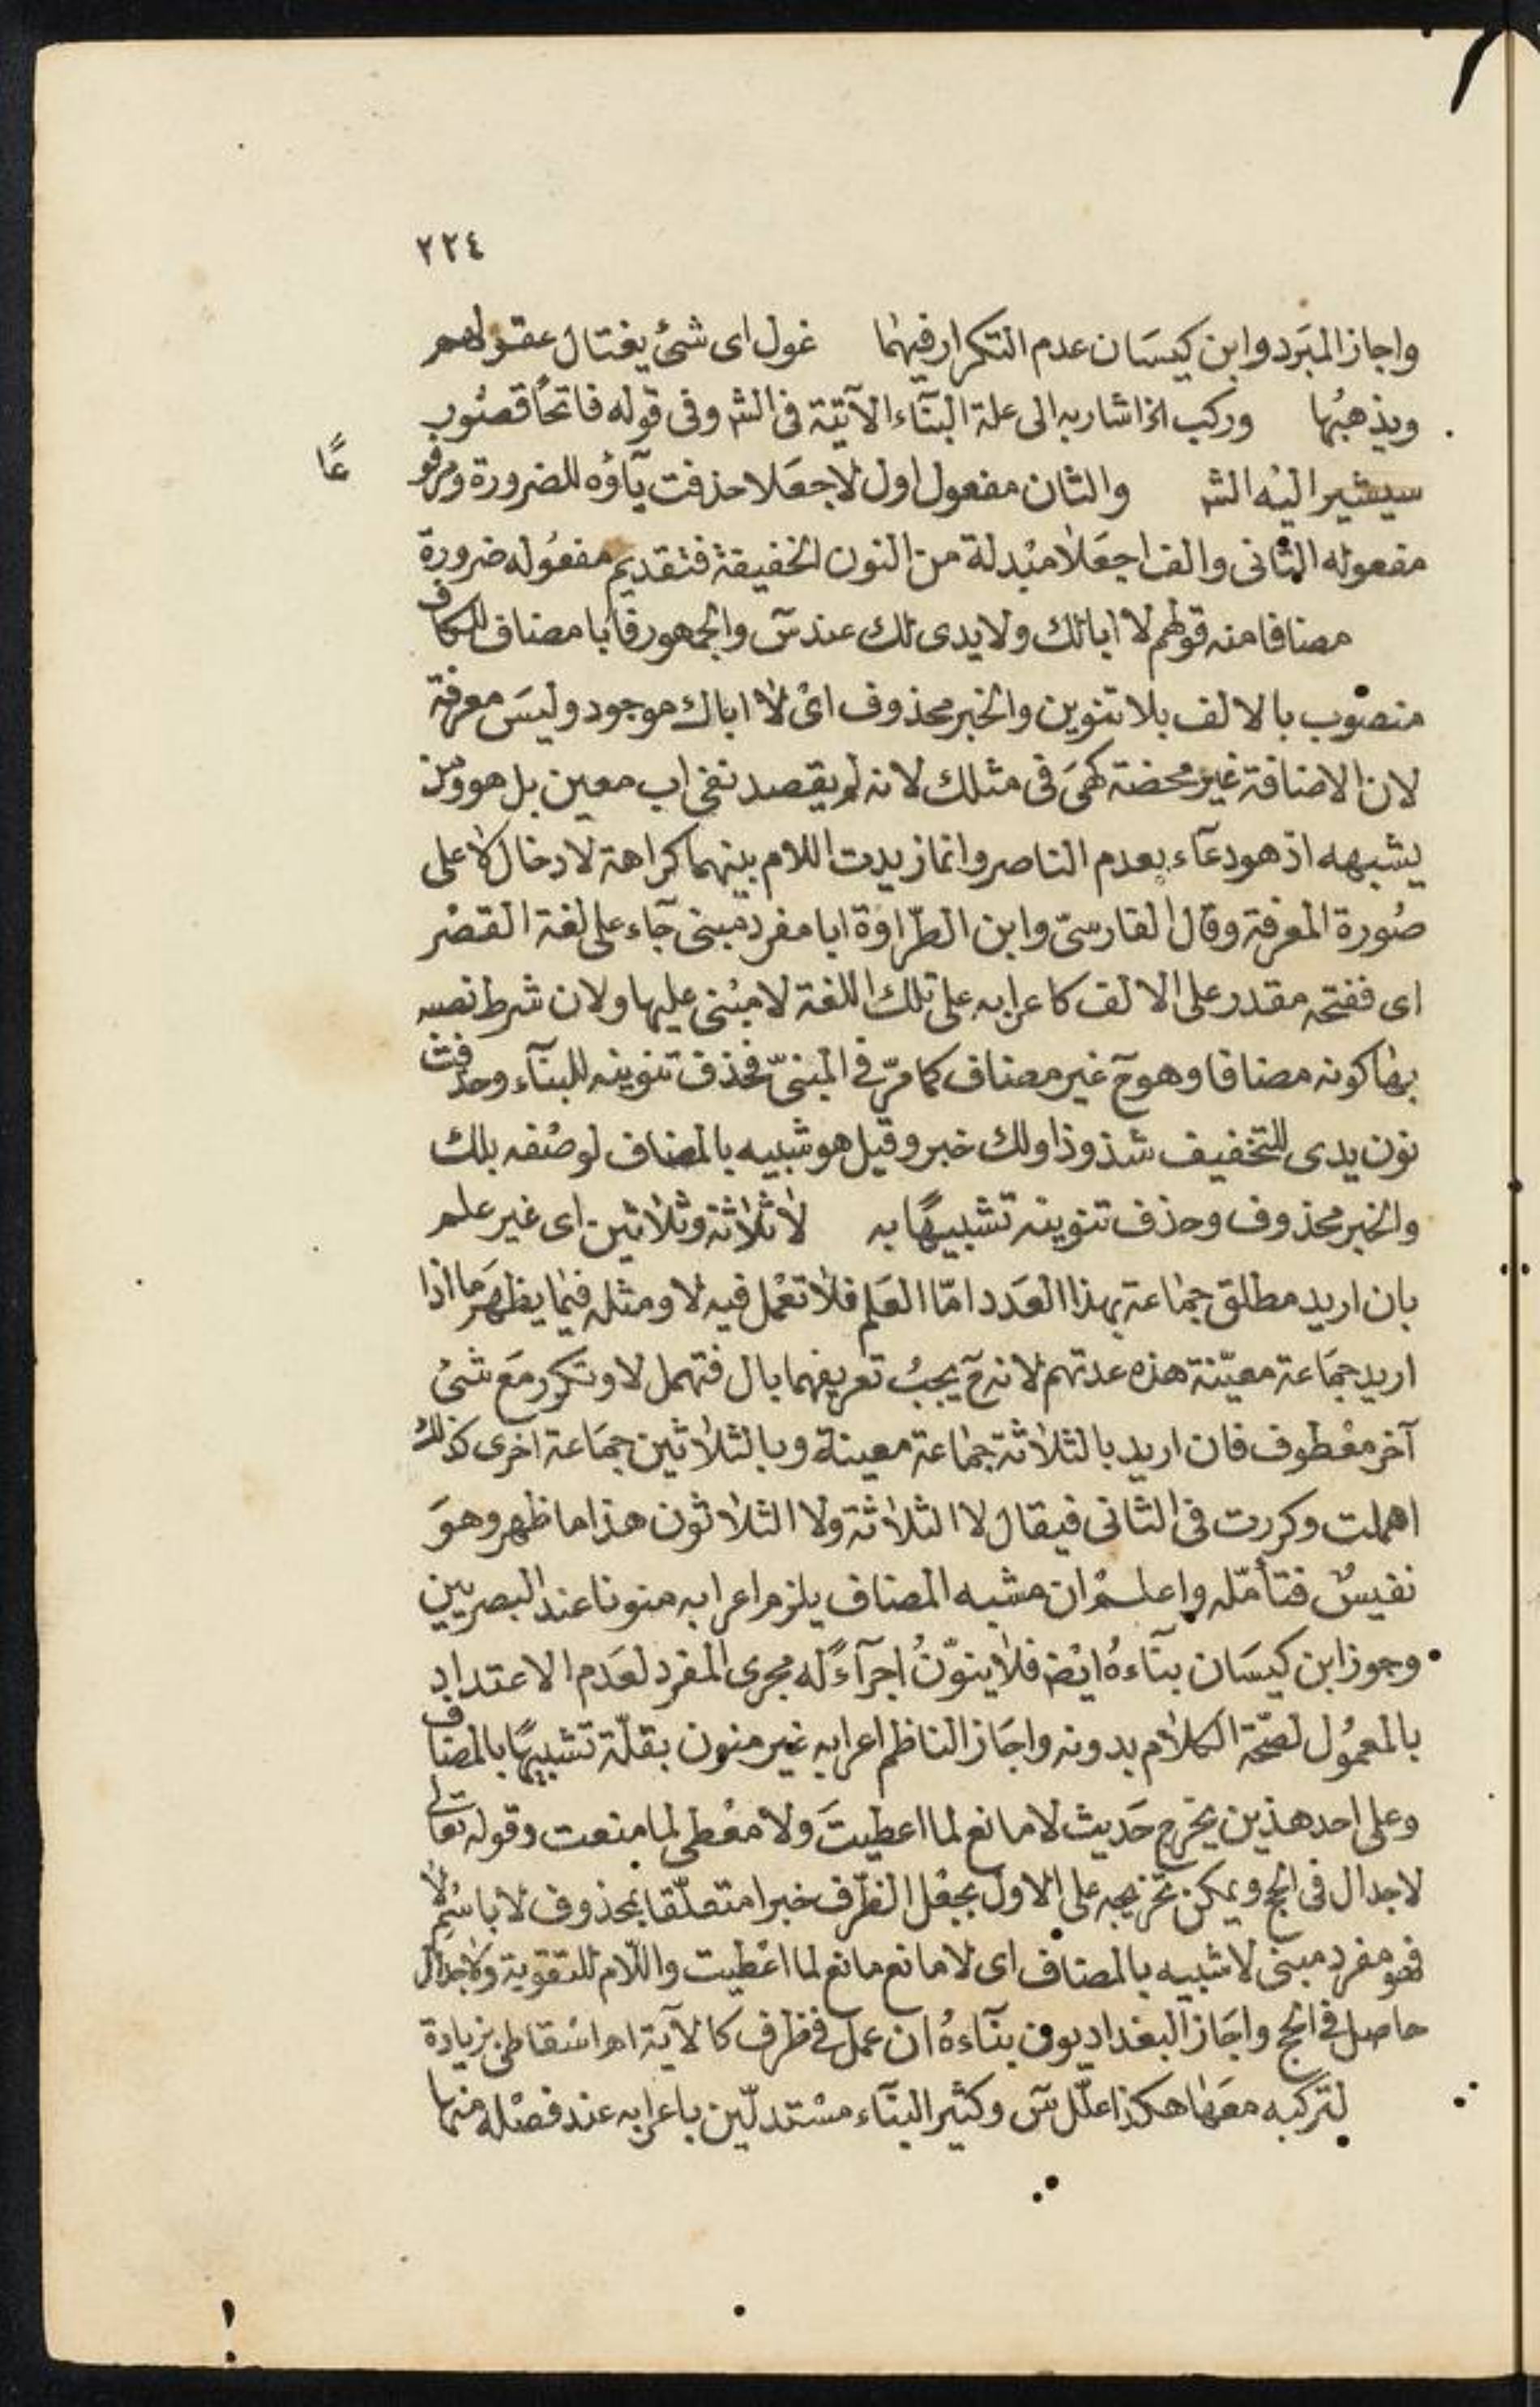 ٢٢٤
واجاز المبَرد وابن كيسَان عدم التكرار فيهٰما غول اى شئ يغتال عقولهم
ويذهبُها وركب الخ اشار به الى علة البنآء الآتية فى الشر وفى قوله فاتحًا قصُور
سيشير اليْه الشر والثان مفعول اول لاجعَلا حذفت يآؤه للضرورة ومرفوعًا
مفعوله الثانى والف اجعَلا مبْدلة من النون الخفيفة فتقديم مفعُوله ضرورة
مضافا منه قولهم لا ابا لك ولا يدى لك عند سٓ والجمهور فابا مضاف للكاف
منصوب بالالف بلا تنوين والخبر محذوف اىْ لا اباك موجود وليسَ معرفة
لان الاضافة غير محضة كهىَ فى مثلك لانه لم يقصد نفى اب معين بل هو ومن
يشبهه اذ هو دعآء بعدم الناصر وانما زيدت اللام بينهما كراهة لادخال لا على
صُورة المعرفة وقال الفارسىّ وابن الطّراوَة ابا مفرد مبنى جآء على لغة القصْر
اى ففتحه مقدر على الالف كاعرابه على تلك اللغة لا مبْنى عليها ولان شرط نصبه
بها كونه مضافا وهو حٓ غير مضاف كما مرّ فى المبنىّ فحذف تنوينه للبنآء وحذفت
نون يدى للتخفيف شذوذا ولك خبر وقيل هو شبيه بالمضاف لوصْفه بلك
والخبر محذوف وحذف تنوينه تشبيهًا به لا ثلاثة وثلاثين اى غير علم
بان اريد مطلق جمٰاعة بهذا العَدد امّا العَلم فلا تعْمل فيه لا ومثله فيمٰا يظهَر ما اذا
اريد جمَاعة معيّنة هذه عدتهم لانه حٓ يجبُ تعريفهما بال فتهمل لا وتكرر مَع شئ
آخر معْطوف فان اريد بالثلاثة جمٰاعة معينة وبالثلاثين جمَاعة اخرى كذلك
اهملت وكررت فى الثانى فيقال لا الثلاثة ولا الثلاثون هذا ما ظهر وهوَ
نفيسٌ فتأمّله واعلمْ ان مشبه المضاف يلزم اعرابه منونا عند البصريين
وجوز ابن كيسَان بنآءهُ ايضْ فلا ينوّنُ اجرآءً له مجرى المفرد لعَدم الاعتداد
بالمعمُول لصّحة الكلام بدونه واجَاز الناظم اعرابه غير منون بقلّة تشبيهًا بالمضاف
وعلى احد هذين يخرج حَديث لا مانع لما اعطيتَ ولا معْطى لما منعت وقوله تعالى
لا جدال فى الحج ويمكن تخريجه على الاول بجعْل الظّرف خبرا متعلّقا بمحذوف لا باسْم لا
فهو مفرد مبنى لا شبيه بالمضاف اى لا مانع مانع لما اعْطيت واللّام للتقوية ولا جدال
حاصل فى الحج واجَاز البغداديون بنآءهُ ان عمل فى ظرف كالآية اهـ اسْقاطى بزيادة
لتركبه معَهٰا هكذا علّل سٓ وكثير البنآء مسْتدلّين باعرابه عند فصْله منها